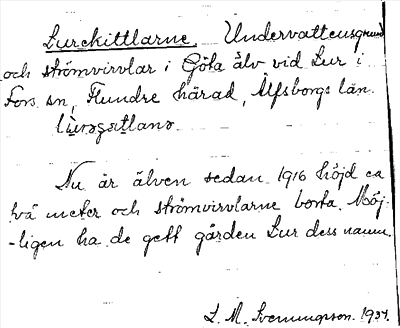 Lurekittlarne. Undervattensgrund
och strömvirvlar i Göta älv vid Lur i
Fors sn, Flundre härad, Älfsborgs län.
Nu är älven sedan 1916 höjd ca
två meter och strömvirvlarne borta. Möj-
-ligen ha de gett gården Lur dess namn.
L. M. Svenungsson. 1934.